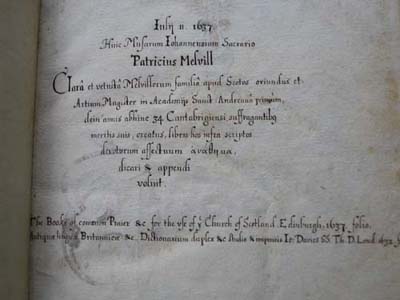 Iulij 11. 1637
Huic Musarum Iohannensium Sacrario
Patricius Melvill
Clarâ et vetustâ Melvillorum familiâ apud Scotos oriundus et
Artium Magister in Academiâ Sanct: Andreanâ primùm,
dein annis abhinc 34 Cantabrigiensi suffragantibꝫ
meritis suis, creatus, libros hos infra scriptos
devotorum affectuum
dicari & appendi
voluit.
The Booke of common Praier &c for the vse of yͤ Church of Scotland. Edinburgh. 1637. folio.
Antiquæ linguæ Britannicæ &c. Dictionarium duplex &c studio & impensis Io: Davies SS. Th. D. Lond. 1632. fo